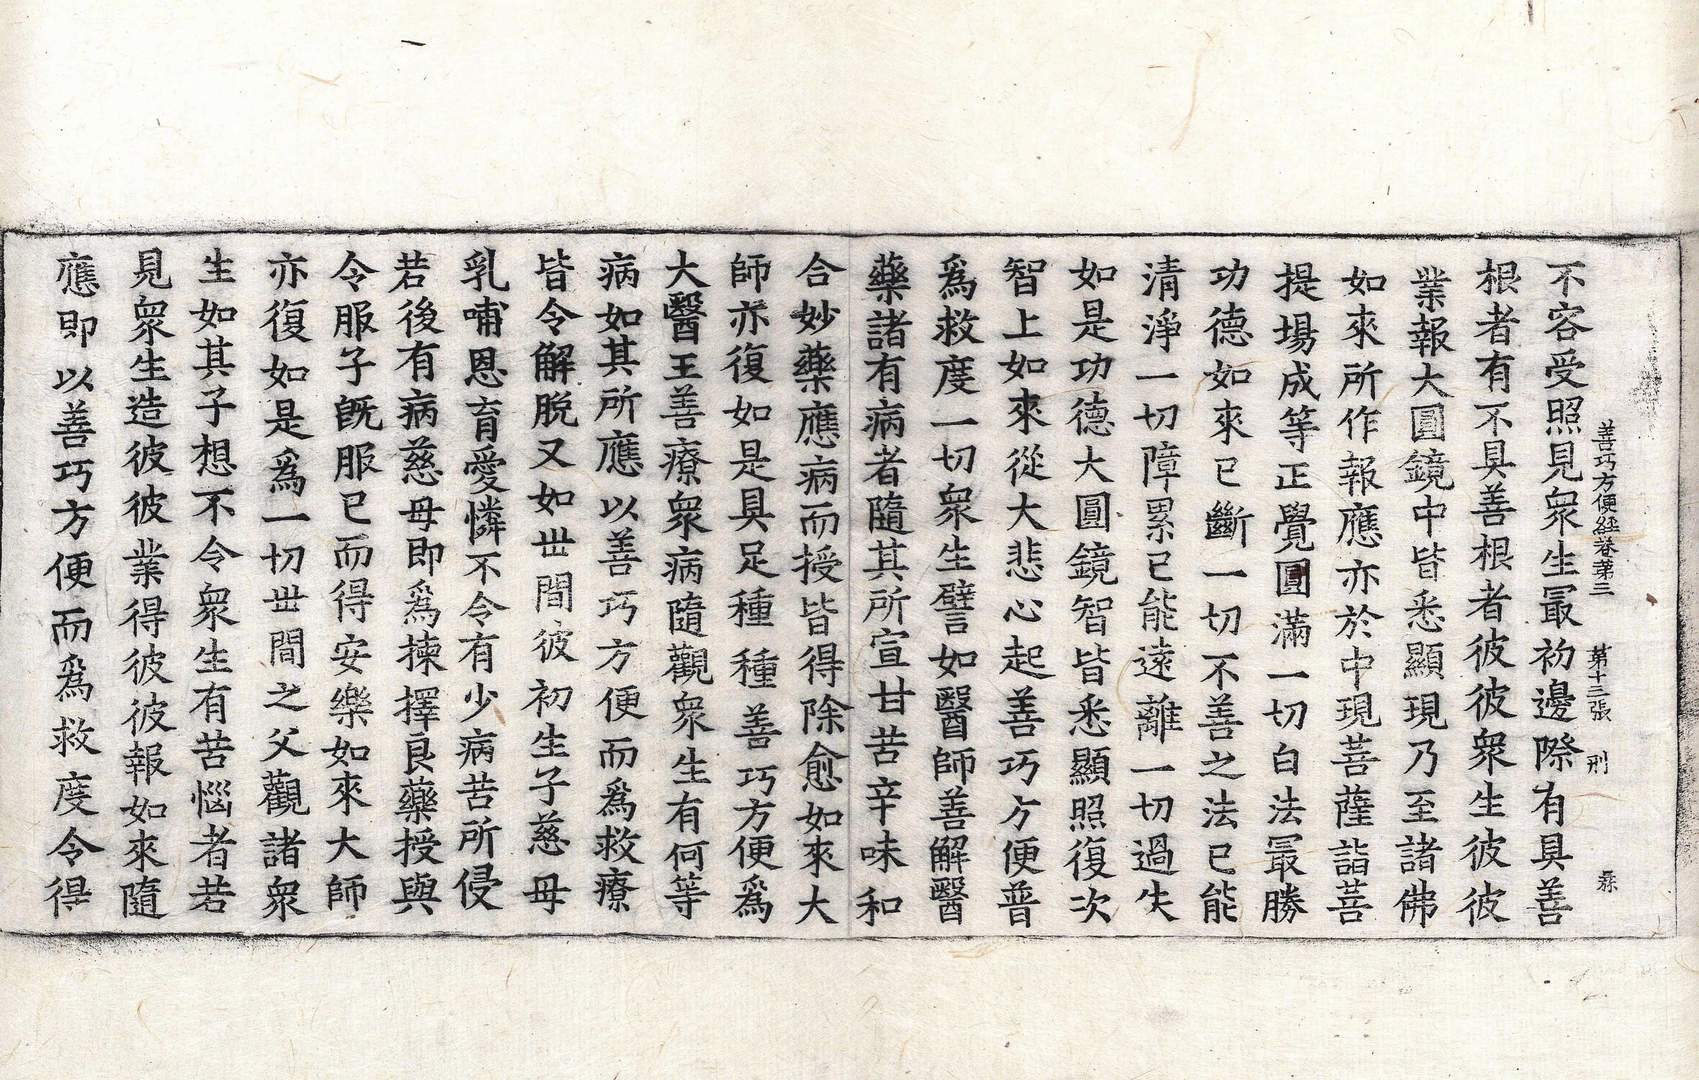 善巧方便經卷第三　第十三張　刑
不容受照見衆生最初邊際有具善
根者有不具善根者彼彼衆生彼彼
業報大圓鏡中皆悉顯現乃至諸佛
如來所作報應亦於中現菩薩詣菩
提場成等正覺圓滿一切白法最勝
功德如來已斷一切不善之法已能
清淨一切障累已能遠離一切過失
如是功德大圓鏡智皆悉顯照復次
智上如來從大悲心起善巧方便普
爲救度一切衆生譬如醫師善解醫
藥諸有病者隨其所宣甘苦辛味和
合妙藥應病而授皆得除愈如來大
師亦復如是具足種種善巧方便爲
大醫王善療衆病隨觀衆生有何等
病如其所應以善巧方便而爲救療
皆令解脫又如世間彼初生子慈母
乳哺恩育愛憐不令有少病苦所侵
若後有病慈母即爲揀擇良藥授與
令服子旣服已而得安樂如來大師
亦復如是爲一切世間之父觀諸衆
生如其子想不令衆生有苦惱者若
見衆生造彼彼業得彼彼報如來隨
應即以善巧方便而爲救度令得